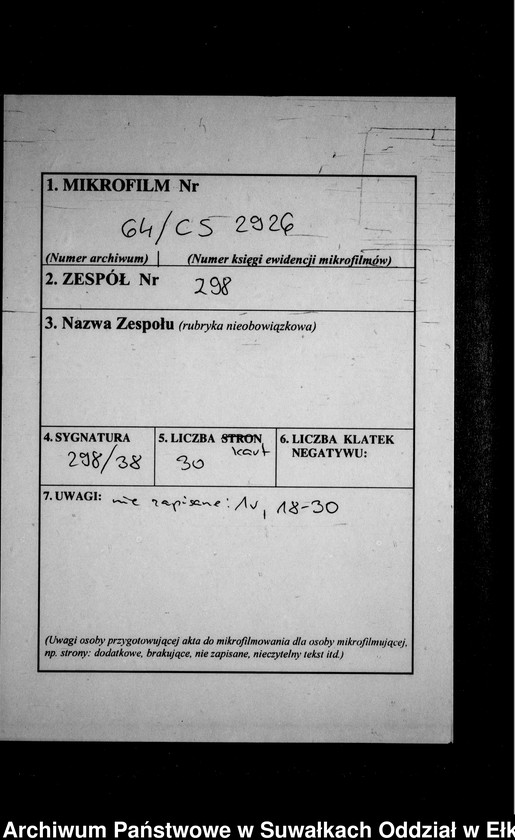 1. MIKROFILM Nr
64/CS 2926
(Numer archiwum) (Numer księgi ewidencji mikrofilmów)
2. ZESPÓŁ Nr 298
3. Nazwa Zespołu (rubryka nieobowiązkowa)
4. SYGNATURA
298/38
5. LICZBA STRON
kart
30
6. LICZBA KLATEK
NEGATYWU:
7. UWAGI: nie zapisane: 1v, 18-30
(Uwagi osoby przygotowującej akta do mikrofilmowania dla osoby mikrofilmującej,
np. strony: dodatkowe, brakujące, nie zapisane, nieczytelny tekst itd.)
Archiwum Państwowe w Suwałkach Oddział w Ełk